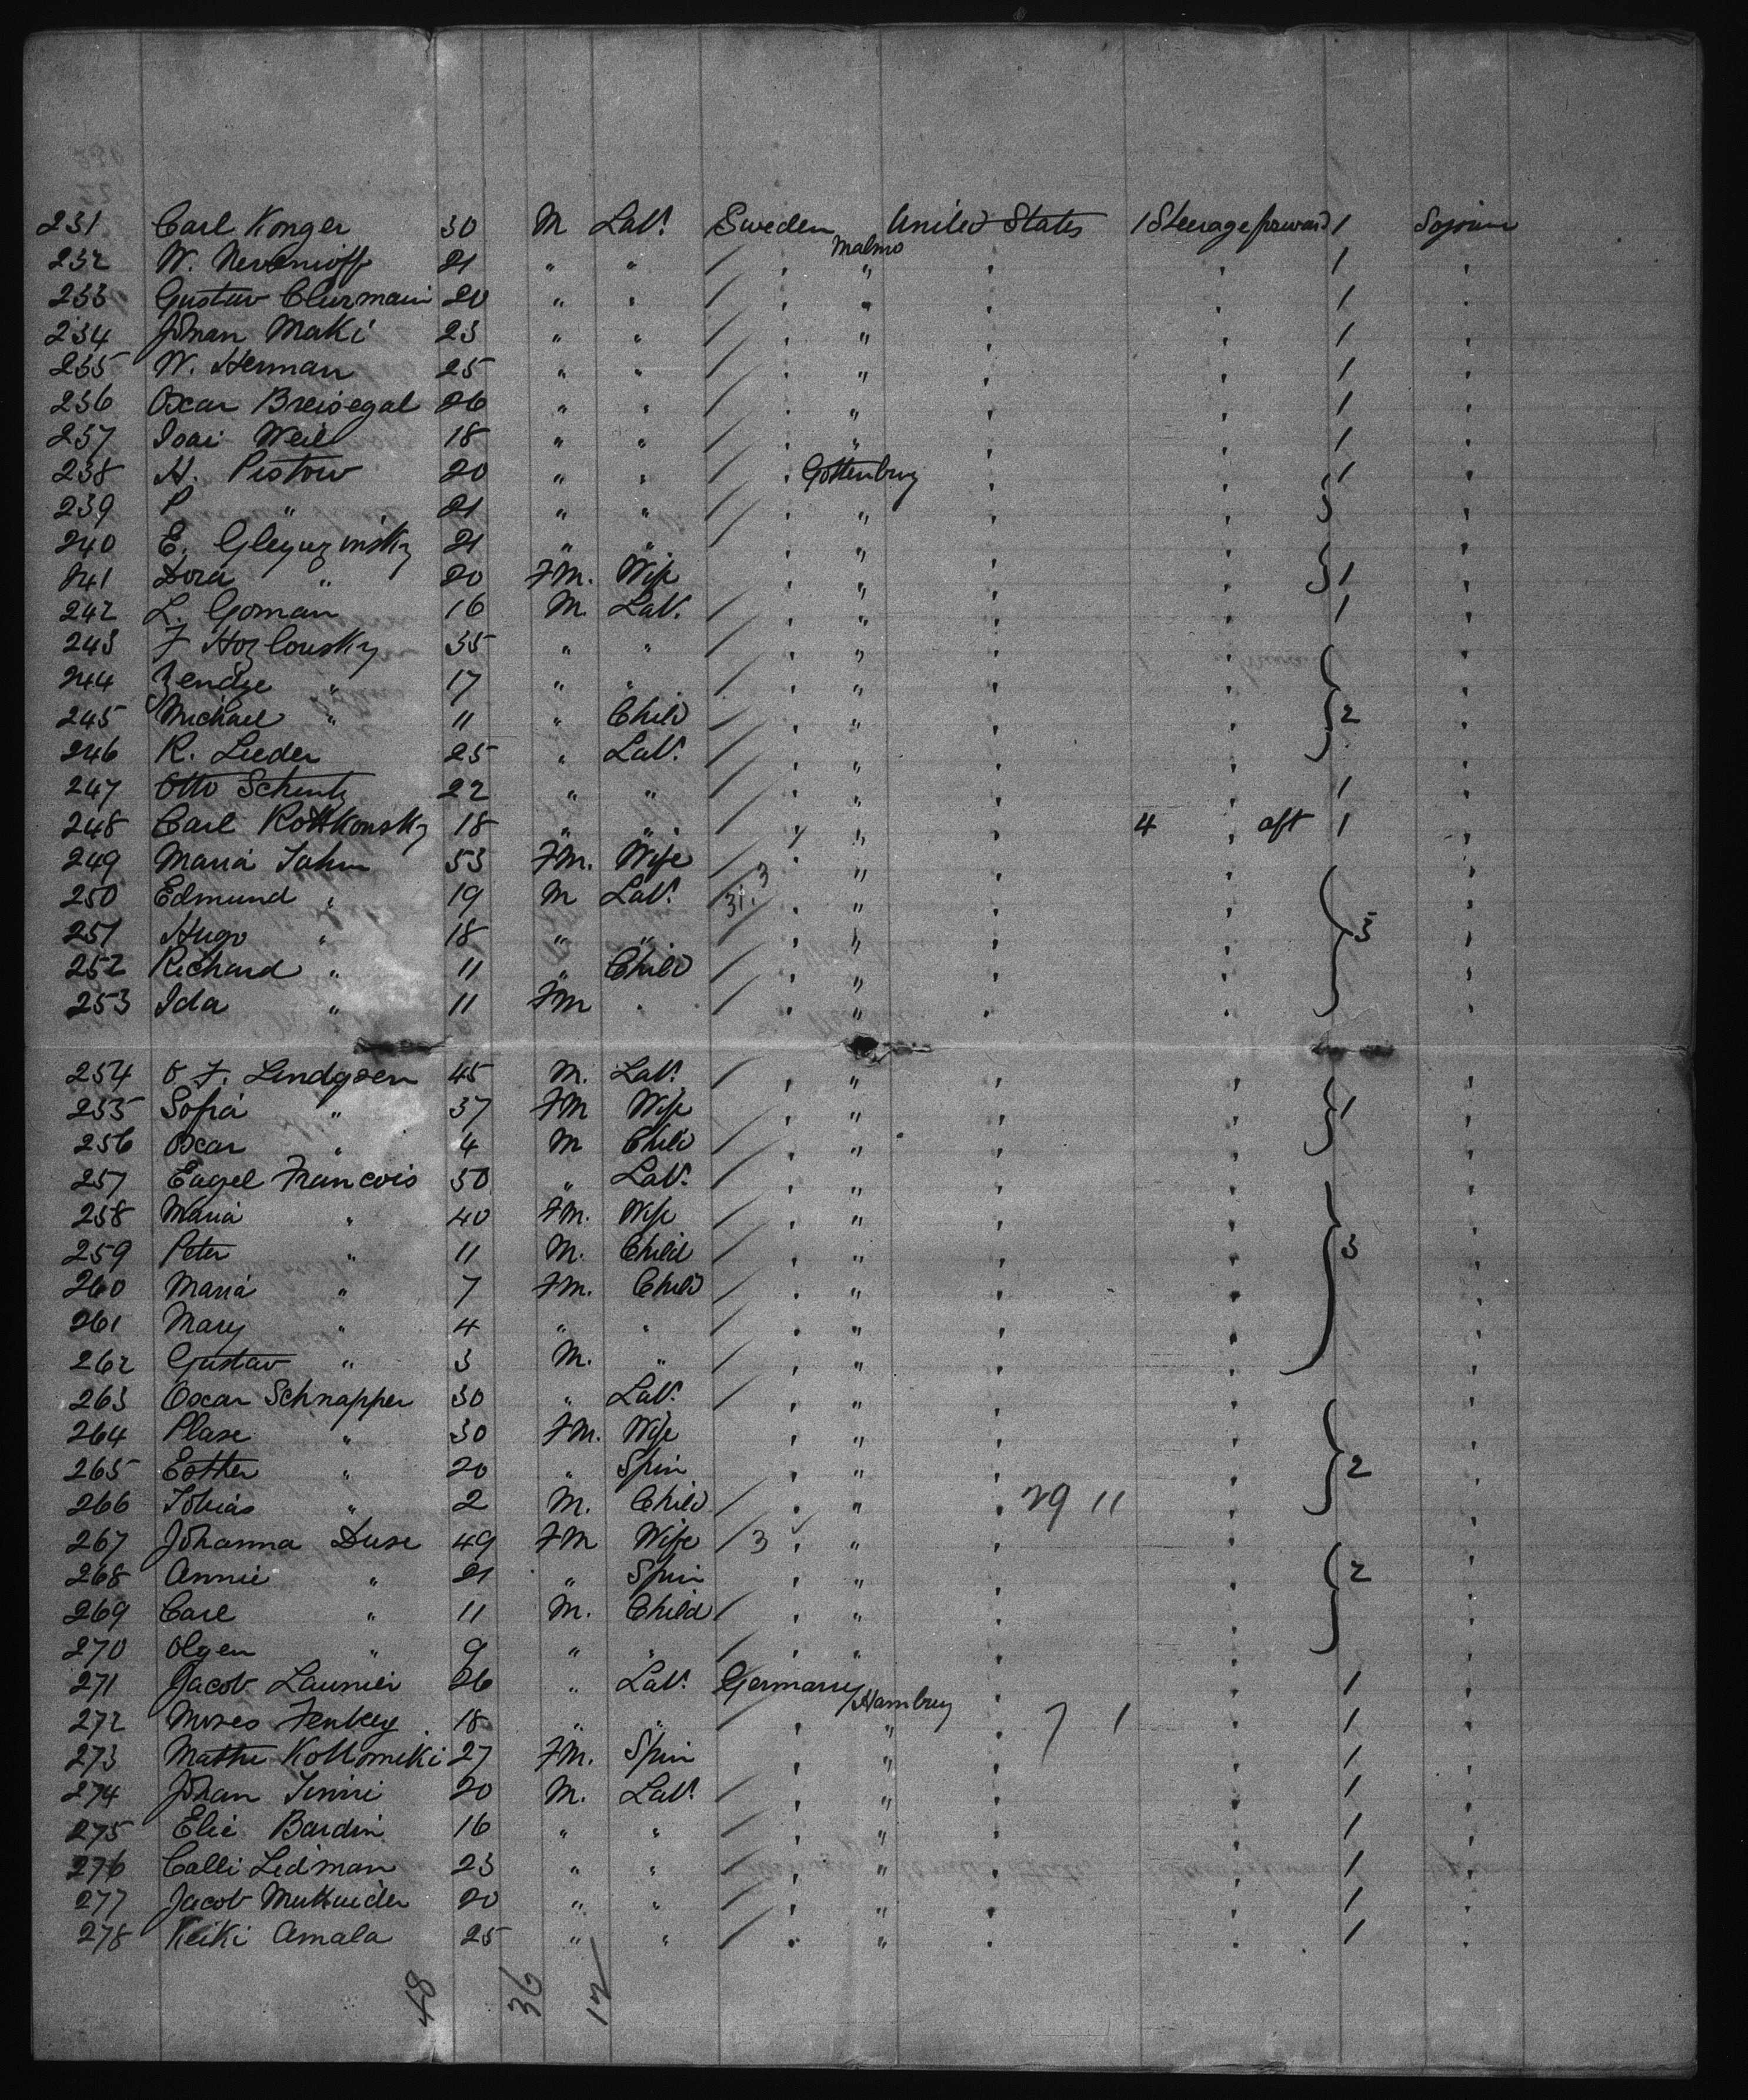 231 Carl Konger 30 M Lab. Sweden Malmo United States 1 Steerage forward 1 Sojourn
232 W. Nevanioff 21 " " / " " " " 1 "
233 Gustav 20 " " / " " " " 1 "
234 Johan Maki 23 " " / " " " " 1 "
235 W. Herman 25 " " / " " " " 1 "
236 Oscar Breisegal 26 " " / " " " " 1 "
237 Isai Weil 18 " " / " " " " 1 "
238 H. Pistow 20 " " / " Gottenburg " " 1 "
239 P " 21 " " / " " " " "
240 E. 21 " " / " " " " "
241 Dora " 20 FM. Wife " " " " 1 "
242 L. Goman 16 M. Lab. / " " " " 1 "
243 F Hozlousky 35 " " / " " " " "
244 Zendye " 17 " " / " " " " "
245 Michael " 11 " Child / " " " " 2 "
246 R. Lieder 25 " Lab. / " " " " "
247 Otto Schentz 22 " " / " " " " 1 "
248 Carl Rottkonsky 18 " " / " " " 4 " aft 1 "
249 Maria Jahn 53 FM. Wife / 3 " " " " "
250 Edmund " 19 M Lab. / 31. " " " " "
251 Hugo " 18 " " / " " " " 3 "
252 Richard " 11 " Child / " " " " "
253 Ida " 11 FM " / " " " " "
254 O F. Lendgren 45 M. Lab. / " " " " "
255 Sofia " 37 FM Wife / " " " " 1 "
256 Oscar " 4 M Child / " " " " "
257 Eagel Francois 50 " Lab. / " " " " "
258 Maria " 40 FM. Wife / " " " " "
259 Peter " 11 M. Child / " " " " 3 "
260 Maria " 7 FM. Child / " " " " "
261 Mary " 4 " " / " " " " "
262 Gustav " 3 M. " / " " " " "
263 Oscar Schnapper 30 " Lab. / " " " " "
264 Plase " 30 FM. Wife " " " " "
265 Esther " 20 " Spin " " " " 2 "
266 Tobias " 2 M. Child / " " " 29 11 " "
267 Johanna Duse 49 FM Wife / 3 " " " " "
268 Annie " 21 " Spin " " " " 2 "
269 Carl " 11 M. Child / " " " " "
270 Olgen " 9 " " / " " " " "
271 Jacob Launier 26 " Lab. Germany Hamburg " " 1 "
272 Moses Fenkey 18 " " " " " 7 1 " 1 "
273 Mathe Kollomeki 27 FM. Spin " " " " 1 "
274 Johan Tinni 20 M. Lab. / " " " " 1 "
275 Elie Bardin 16 " " / " " " " 1 "
276 Calli Ledman 23 " " / " " " " 1 "
277 Jacob 20 " " / " " " " 1 "
278 Keiki Amala 25 " " / " " " " 1 "
48 36 12